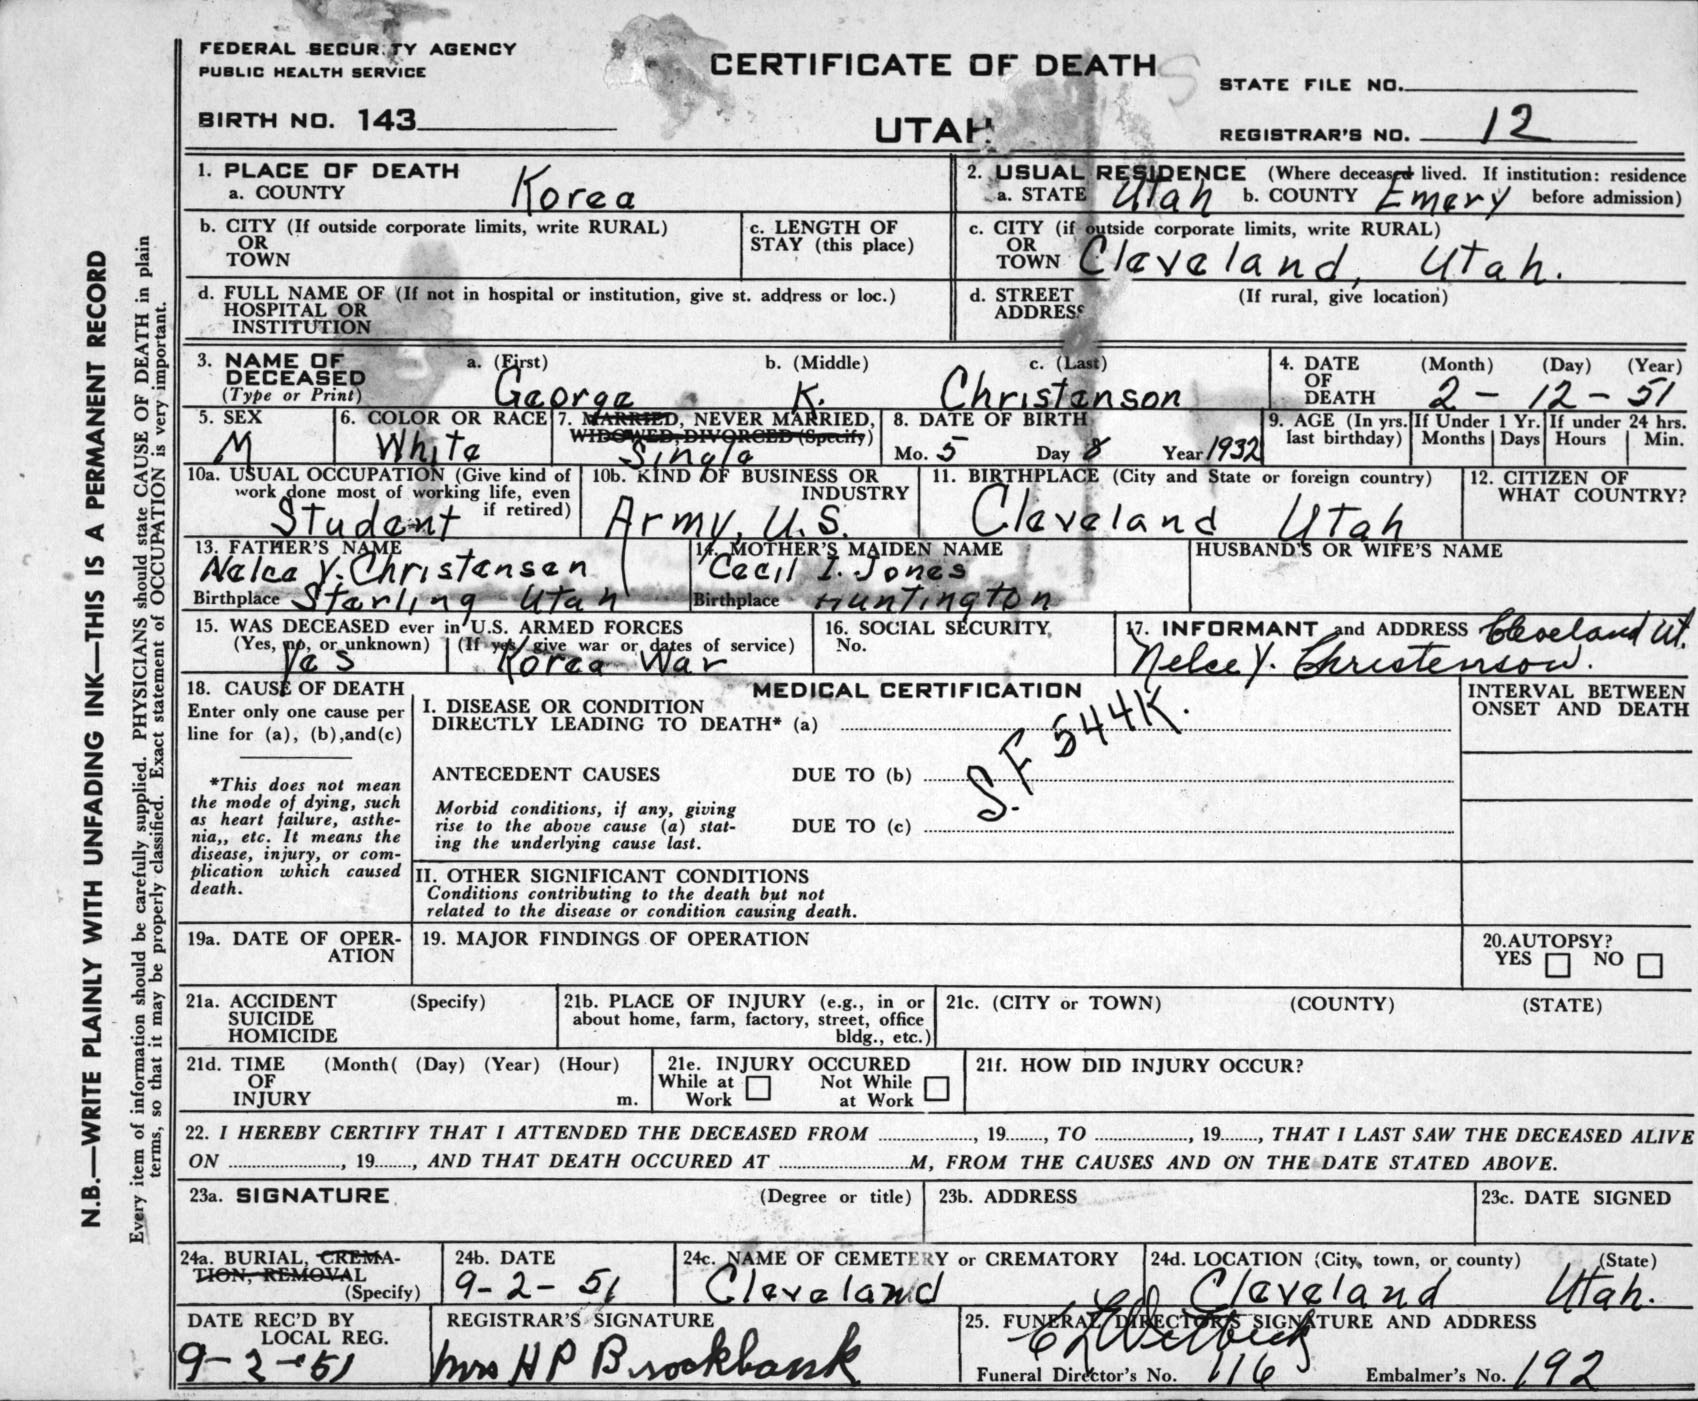 FEDERAL SECURITY AGENCY
PUBLIC HEALTH SERVICE
CERTIFICATE OF DEATH
STATE FILE NO.
BIRTH NO. 143
UTAH
REGISTRAR'S NO. 12
N.B.—WRITE PLAINLY WITH UNFADING INK—THIS IS A PERMANENT RECORD
Every item of information should be carefully supplied. PHYSICIANS should state CAUSE OF DEATH in plain
terms, so that it may be properly classified. Exact statement of OCCUPATION is very important.
1. PLACE OF DEATH
a. COUNTY Korea
2. USUAL RESIDENCE (Where deceased lived. If institution: residence
a. STATE Utah b. COUNTY Emery before admission)
b. CITY (If outside corporate limits, write RURAL)
OR
TOWN
c. LENGTH OF
STAY (this place)
c. CITY (if outside corporate limits, write RURAL)
OR
TOWN Cleveland, Utah.
d. FULL NAME OF (If not in hospital or institution, give st. address or loc.)
HOSPITAL OR
INSTITUTION
d. STREET (If rural, give location)
ADDRESS
3. NAME OF
DECEASED
(Type or Print)
a. (First) b. (Middle) c. (Last)
George K. Christenson
4. DATE (Month) (Day) (Year)
OF
DEATH 2 - 12 - 51
5. SEX
M
6. COLOR OR RACE
White
7. MARRIED, NEVER MARRIED,
WIDOWED, DIVORCED (Specify)
Single
8. DATE OF BIRTH
Mo. 5 Day 8 Year 1932
9. AGE (In yrs.
last birthday)
If Under 1 Yr.
Months Days
If under 24 hrs.
Hours Min.
10a. USUAL OCCUPATION (Give kind of
work done most of working life, even
if retired)
Student
10b. KIND OF BUSINESS OR
INDUSTRY
Army, U.S.
11. BIRTHPLACE (City and State or foreign country)
Cleveland Utah
12. CITIZEN OF
WHAT COUNTRY?
13. FATHER'S NAME
Nelce Y. Christensen
Birthplace Starling Utah
14. MOTHER'S MAIDEN NAME
Cecil I. Jones
Birthplace Huntington
HUSBAND'S OR WIFE'S NAME
15. WAS DECEASED ever in U.S. ARMED FORCES
(Yes, no, or unknown) (If yes, give war or dates of service)
Yes Korea War
16. SOCIAL SECURITY
No.
17. INFORMANT and ADDRESS Cleveland Ut.
Nelce Y. Christenson.
18. CAUSE OF DEATH
Enter only one cause per
line for (a), (b), and (c)
*This does not mean
the mode of dying, such
as heart failure, asthe-
nia,, etc. It means the
disease, injury, or com-
plication which caused
death.
MEDICAL CERTIFICATION
I. DISEASE OR CONDITION
DIRECTLY LEADING TO DEATH* (a)
S.F 544K.
ANTECEDENT CAUSES DUE TO (b)
Morbid conditions, if any, giving
rise to the above cause (a) stat-
ing the underlying cause last.
DUE TO (c)
INTERVAL BETWEEN
ONSET AND DEATH
II. OTHER SIGNIFICANT CONDITIONS
Conditions contributing to the death but not
related to the disease or condition causing death.
19a. DATE OF OPER-
ATION
19. MAJOR FINDINGS OF OPERATION
20. AUTOPSY?
YES NO
21a. ACCIDENT (Specify)
SUICIDE
HOMICIDE
21b. PLACE OF INJURY (e.g., in or
about home, farm, factory, street, office
bldg., etc.)
21c. (CITY or TOWN) (COUNTY) (STATE)
21d. TIME (Month( (Day) (Year) (Hour)
OF
INJURY m.
21e. INJURY OCCURED
While at Not While
Work at Work
21f. HOW DID INJURY OCCUR?
22. I HEREBY CERTIFY THAT I ATTENDED THE DECEASED FROM , 19 , TO , 19 , THAT I LAST SAW THE DECEASED ALIVE
ON , 19 , AND THAT DEATH OCCURED AT M, FROM THE CAUSES AND ON THE DATE STATED ABOVE.
23a. SIGNATURE (Degree or title)
23b. ADDRESS
23c. DATE SIGNED
24a. BURIAL, CREMA-
TION, REMOVAL
(Specify)
24b. DATE
9-2-51
24c. NAME OF CEMETERY or CREMATORY
Cleveland
24d. LOCATION (City, town, or county) (State)
Cleveland Utah.
DATE REC'D BY
LOCAL REG.
9-2-51
REGISTRAR'S SIGNATURE
Mrs H P Brockbank
25. FUNERAL DIRECTOR'S SIGNATURE AND ADDRESS
Funeral Director's No. 116 Embalmer's No. 192